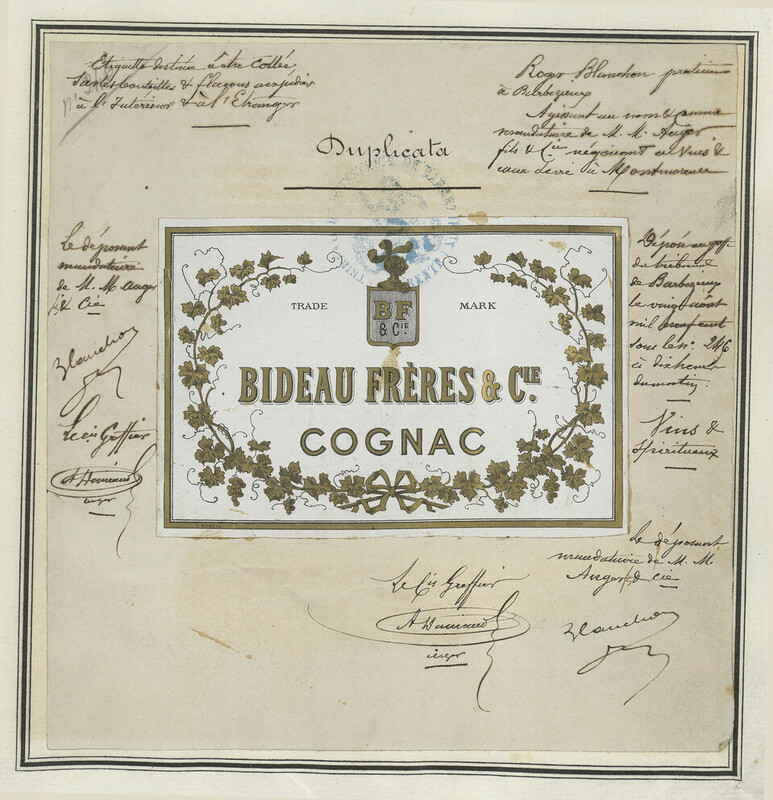 Etiquette destinée à être Collée
sur les bouteilles & flacons expédiés
à l'Intérieur & à l'Etranger
Roger Blanchon praticien
à Barbezieux
Agissant au nom & comme
mandataire de M. M. Auger
fils & Cie négociant en Vins &
eaux de vie à
Duplicata
TRADE MARK
BF
& CIE
BIDEAU FRÈRES & CIE.
COGNAC
Le déposant
mandataire
de M. M. Auger
& Cie
Blanchon
Le Cis Greffier
Déposé au greffe
du tribunal
de Barbezieux
le vingt août
mil neuf cent
sous le no. 246
à dix heures
du matin
Vins &
Spiritueux
Le déposant
mandataire de M. M.
Auger & Cie
Blanchon
Le Cis Greffier